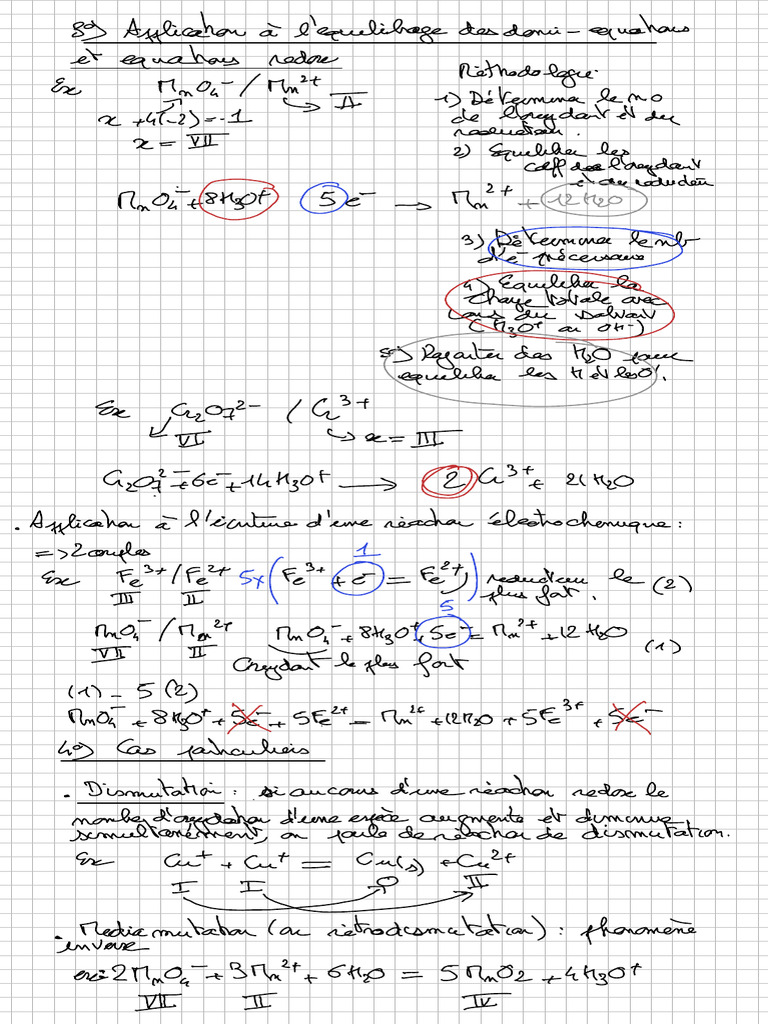 3°) Application à l'équilibrage des demi-équations
et équations redox
Ex MnO4⁻ / Mn²⁺
II
x + 4(-2) = -1
x = VII
Méthodologie :
1) Déterminer le no
de l'oxydant et du
réducteur.
2) Equilibrer les
coeff de l'oxydant
et du réducteur
MnO4⁻ + 8H3O⁺ 5 e⁻ → Mn²⁺ + 12H2O
3) Déterminer le nb
d'e⁻ nécessaires
4) Equilibrer la
charge totale avec
ions du solvant
(H3O⁺ ou OH⁻)
5) Rajouter des H2O pour
équilibrer les H et les O.
Ex Cr2O7²⁻ / Cr³⁺
VI x = III
Cr2O7²⁻ + 6e⁻ + 14H3O⁺ → 2 Cr³⁺ + 21H2O
. Application à l'écriture d'une réaction électrochimique :
=> 2 couples
Ex Fe³⁺/Fe²⁺ 5x (Fe³⁺ + e⁻ = Fe²⁺) réducteur le (2)
III II 1 plus fort.
MnO4⁻ / Mn²⁺ MnO4⁻ + 8H3O⁺, 5e⁻ = Mn²⁺ + 12H2O (1)
VII II 5
Oxydant le plus fort
(1) - 5 (2)
MnO4⁻ + 8H3O⁺ + 5e⁻ + 5Fe²⁺ = Mn²⁺ + 12H2O + 5Fe³⁺ + 5e⁻
4°) Cas particuliers
. Dismutation : si au cours d'une réaction redox le
nombre d'oxydation d'une espèce augmente et diminue
simultanément, on parle de réaction de dismutation.
Ex Cu⁺ + Cu⁺ = Cu(s) + Cu²⁺
I I 0 II
. Médiamutation (ou rétrodismutation) : phénomène
inverse
ex: 2MnO4⁻ + 3Mn²⁺ + 6H2O = 5MnO2 + 4H3O⁺
VII II IV